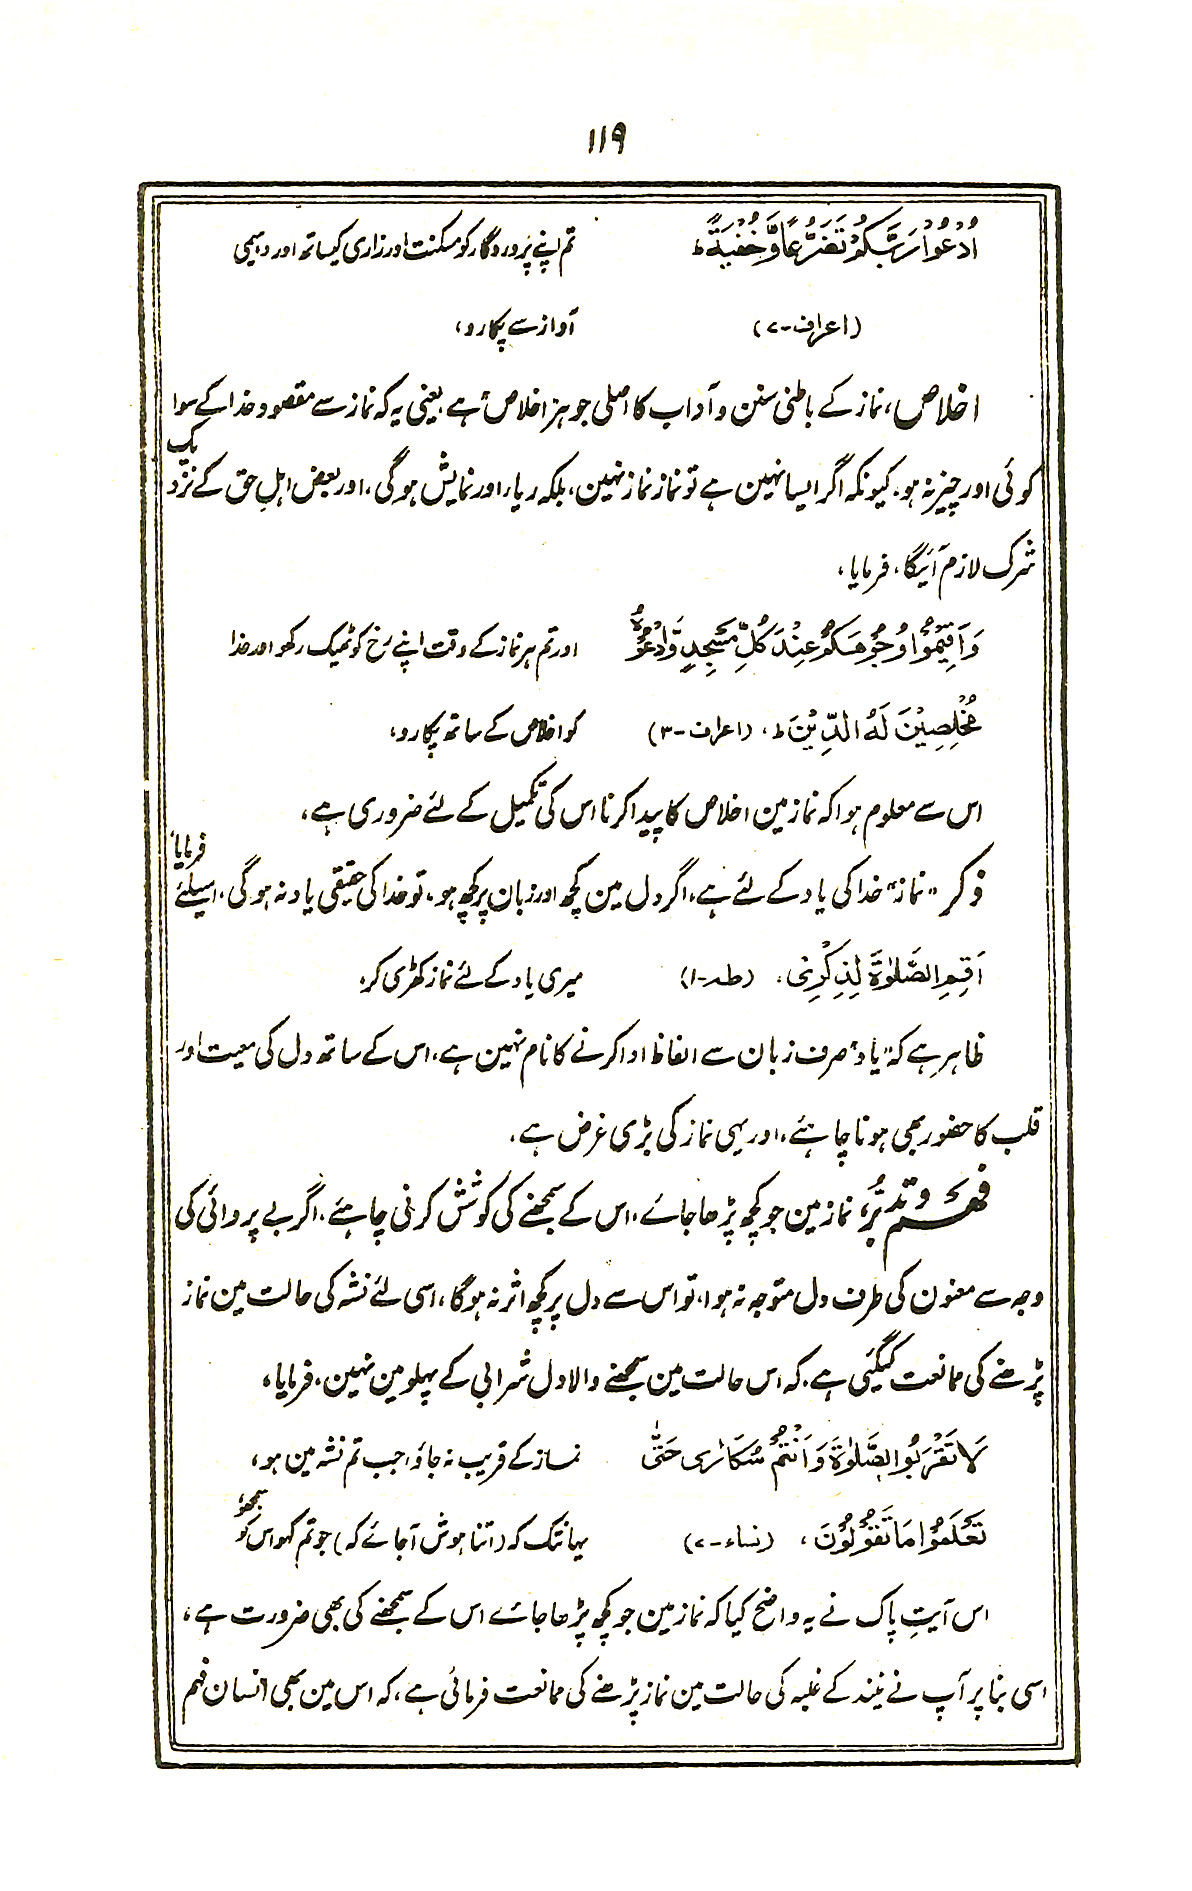 ۱۱۹
اُدْعُوْا رَبَّكُمْ تَضَرُّعًا وَّخُفْيَةً ط تم اپنے پروردگار کو مسکنت اور زاری کیساتھ اور دہیمی
(اعراف-۷) آواز سے پکارو،
اخلاص، نماز کے باطنی سنن و آداب کا اصلی جوہر اخلاص ہے، یعنی یہ کہ نماز سے مقصود خدا کے سوا
کوئی اور چیز نہ ہو، کیونکہ اگر ایسا نہین ہے تو نماز نماز نہین، بلکہ ریاء اور نمایش ہوگی، اور بعض اہلِ حق کے نزدیک
شرک لازم آئیگا، فرمایا،
وَاَقِيْمُوْا وُجُوْهَكُمْ عِنْدَ كُلِّ مَسْجِدٍ وَّادْعُوْهُ اور تم ہر نماز کے وقت اپنے رخ کو ٹھیک رکھو اور خدا
مُخْلِصِيْنَ لَهُ الدِّيْنَ ط، (اعراف-۳) کو اخلاص کے ساتھ پکارو،
اس سے معلوم ہوا کہ نماز مین اخلاص کا پیدا کرنا اس کی تکمیل کے لئے ضروری ہے،
ذکر "نماز" خدا کی یاد کے لئے ہے، اگر دل مین کچھ اور زبان پر کچھ ہو، تو خدا کی حقیقی یاد نہ ہوگی، اسیلئے فرمایا،
اَقِمِ الصَّلٰوةَ لِذِكْرِىْ، (طہ-۱) میری یاد کے لئے نماز کھڑی کر،
ظاہر ہے کہ "یاد" صرف زبان سے الفاظ ادا کرنے کا نام نہین ہے، اس کے ساتھ دل کی معیت اور
قلب کا حضور بھی ہونا چاہئے، اور یہی نماز کی بڑی غرض ہے،
فہم و تدبُّر، نماز مین جو کچھ پڑھا جائے، اس کے سمجھنے کی کوشش کرنی چاہئے، اگر بے پروائی کی
وجہ سے معنون کی طرف دل متوجہ نہ ہوا، تو اس سے دل پر کچھ اثر نہ ہوگا، اسی لئے نشہ کی حالت مین نماز
پڑھنے کی ممانعت کیگئی ہے، کہ اس حالت مین سمجھنے والا دل شرابی کے پہلو مین نہین، فرمایا،
لَا تَقْرَبُوا الصَّلٰوةَ وَاَنْتُمْ سُكَارٰى حَتّٰى نماز کے قریب نہ جاؤ، جب تم نشہ مین ہو،
تَعْلَمُوْا مَا تَقُوْلُوْنَ، (نساء-۷) یہانتک کہ (اتنا ہوش آجائے کہ) جو تم کہو اس کو سمجھو،
اس آیتِ پاک نے یہ واضح کیا کہ نماز مین جو کچھ پڑھا جائے اس کے سمجھنے کی بھی ضرورت ہے،
اسی بنا پر آپ نے نیند کے غلبہ کی حالت مین نماز پڑھنے کی ممانعت فرمائی ہے، کہ اس مین بھی انسان فہم